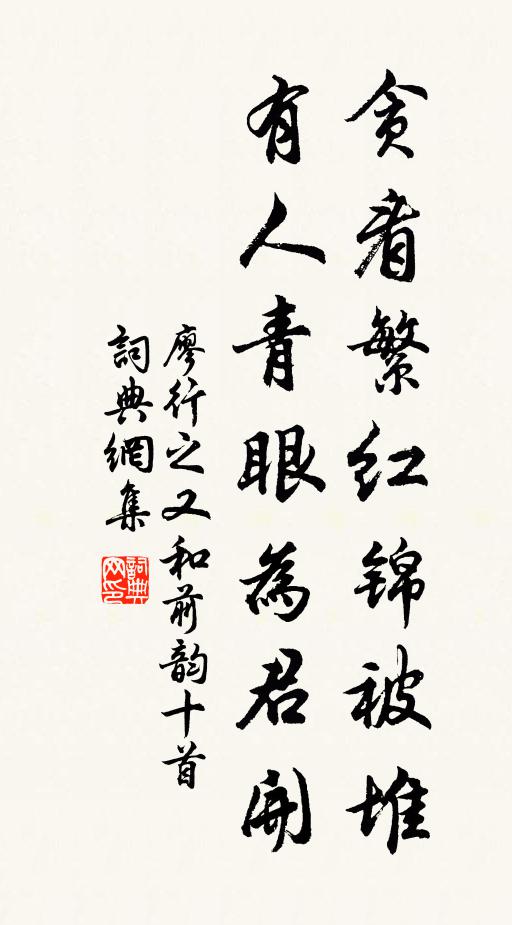 贪看繁红锦被堆
有人青眼為君開
廖行之又和前韵十首
詞典網集
詞典网印